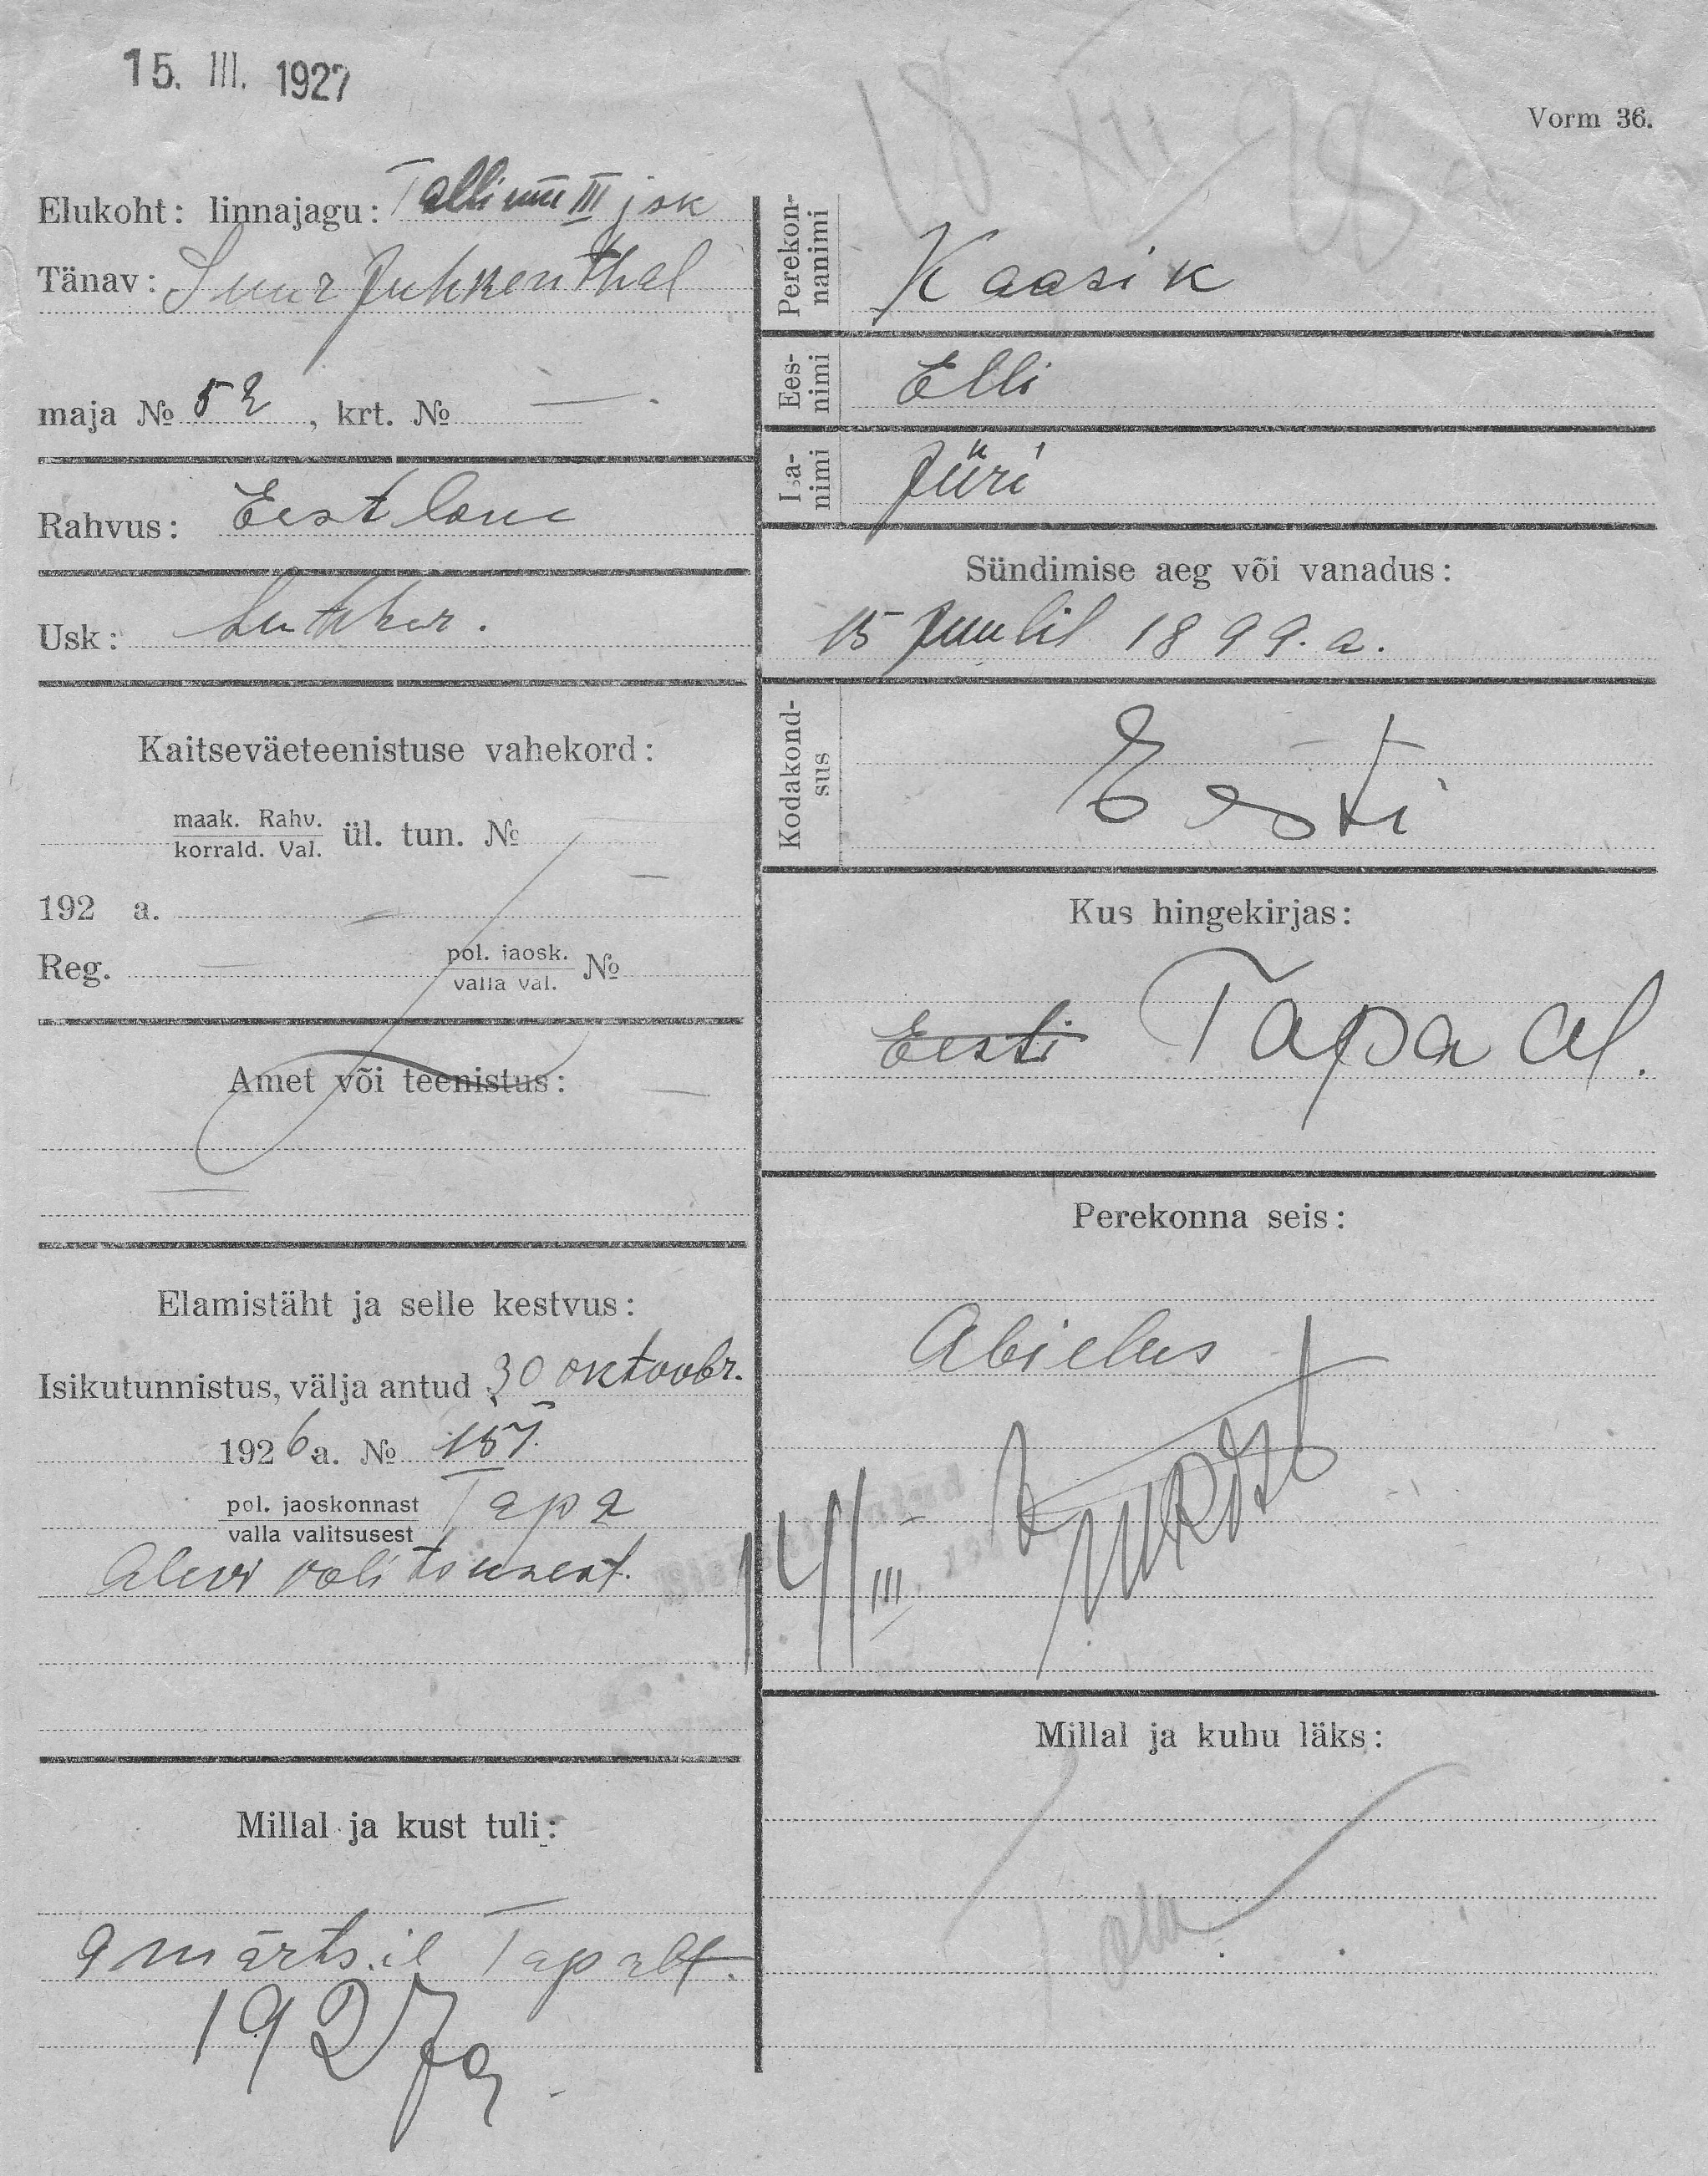 15. III. 1927
Vorm 36.
Elukoht: linnajagu: Tallinna III jsk
Tänav: Suur Juhkenthal
maja № 52, krt. № —.
Rahvus: Eestlane
Usk: Luther.
Kaitseväeteenistuse vahekord:
maak. Rahv.
korrald. Val. ül. tun. №
192 a.
Reg. pol. jaosk. №
valla val.
Amet või teenistus:
Elamistäht ja selle kestvus:
Isikutunnistus, välja antud 30 oktoobr.
1926 a. № 157.
pol. jaoskonnast Tapa
valla valitsusest
Alevi valitsusest.
Millal ja kust tuli:
9 märtsil Tapalt.
1927 a
Perekon-
nanimi Kaasik
Ees-
nimi Elli
Isa-
nimi Jüri
Sündimise aeg või vanadus:
15 Juulil 1899. a.
Kodakond-
sus Eesti
Kus hingekirjas:
Eesti Tapa al.
Perekonna seis:
Abielus
14/III
Millal ja kuhu läks: